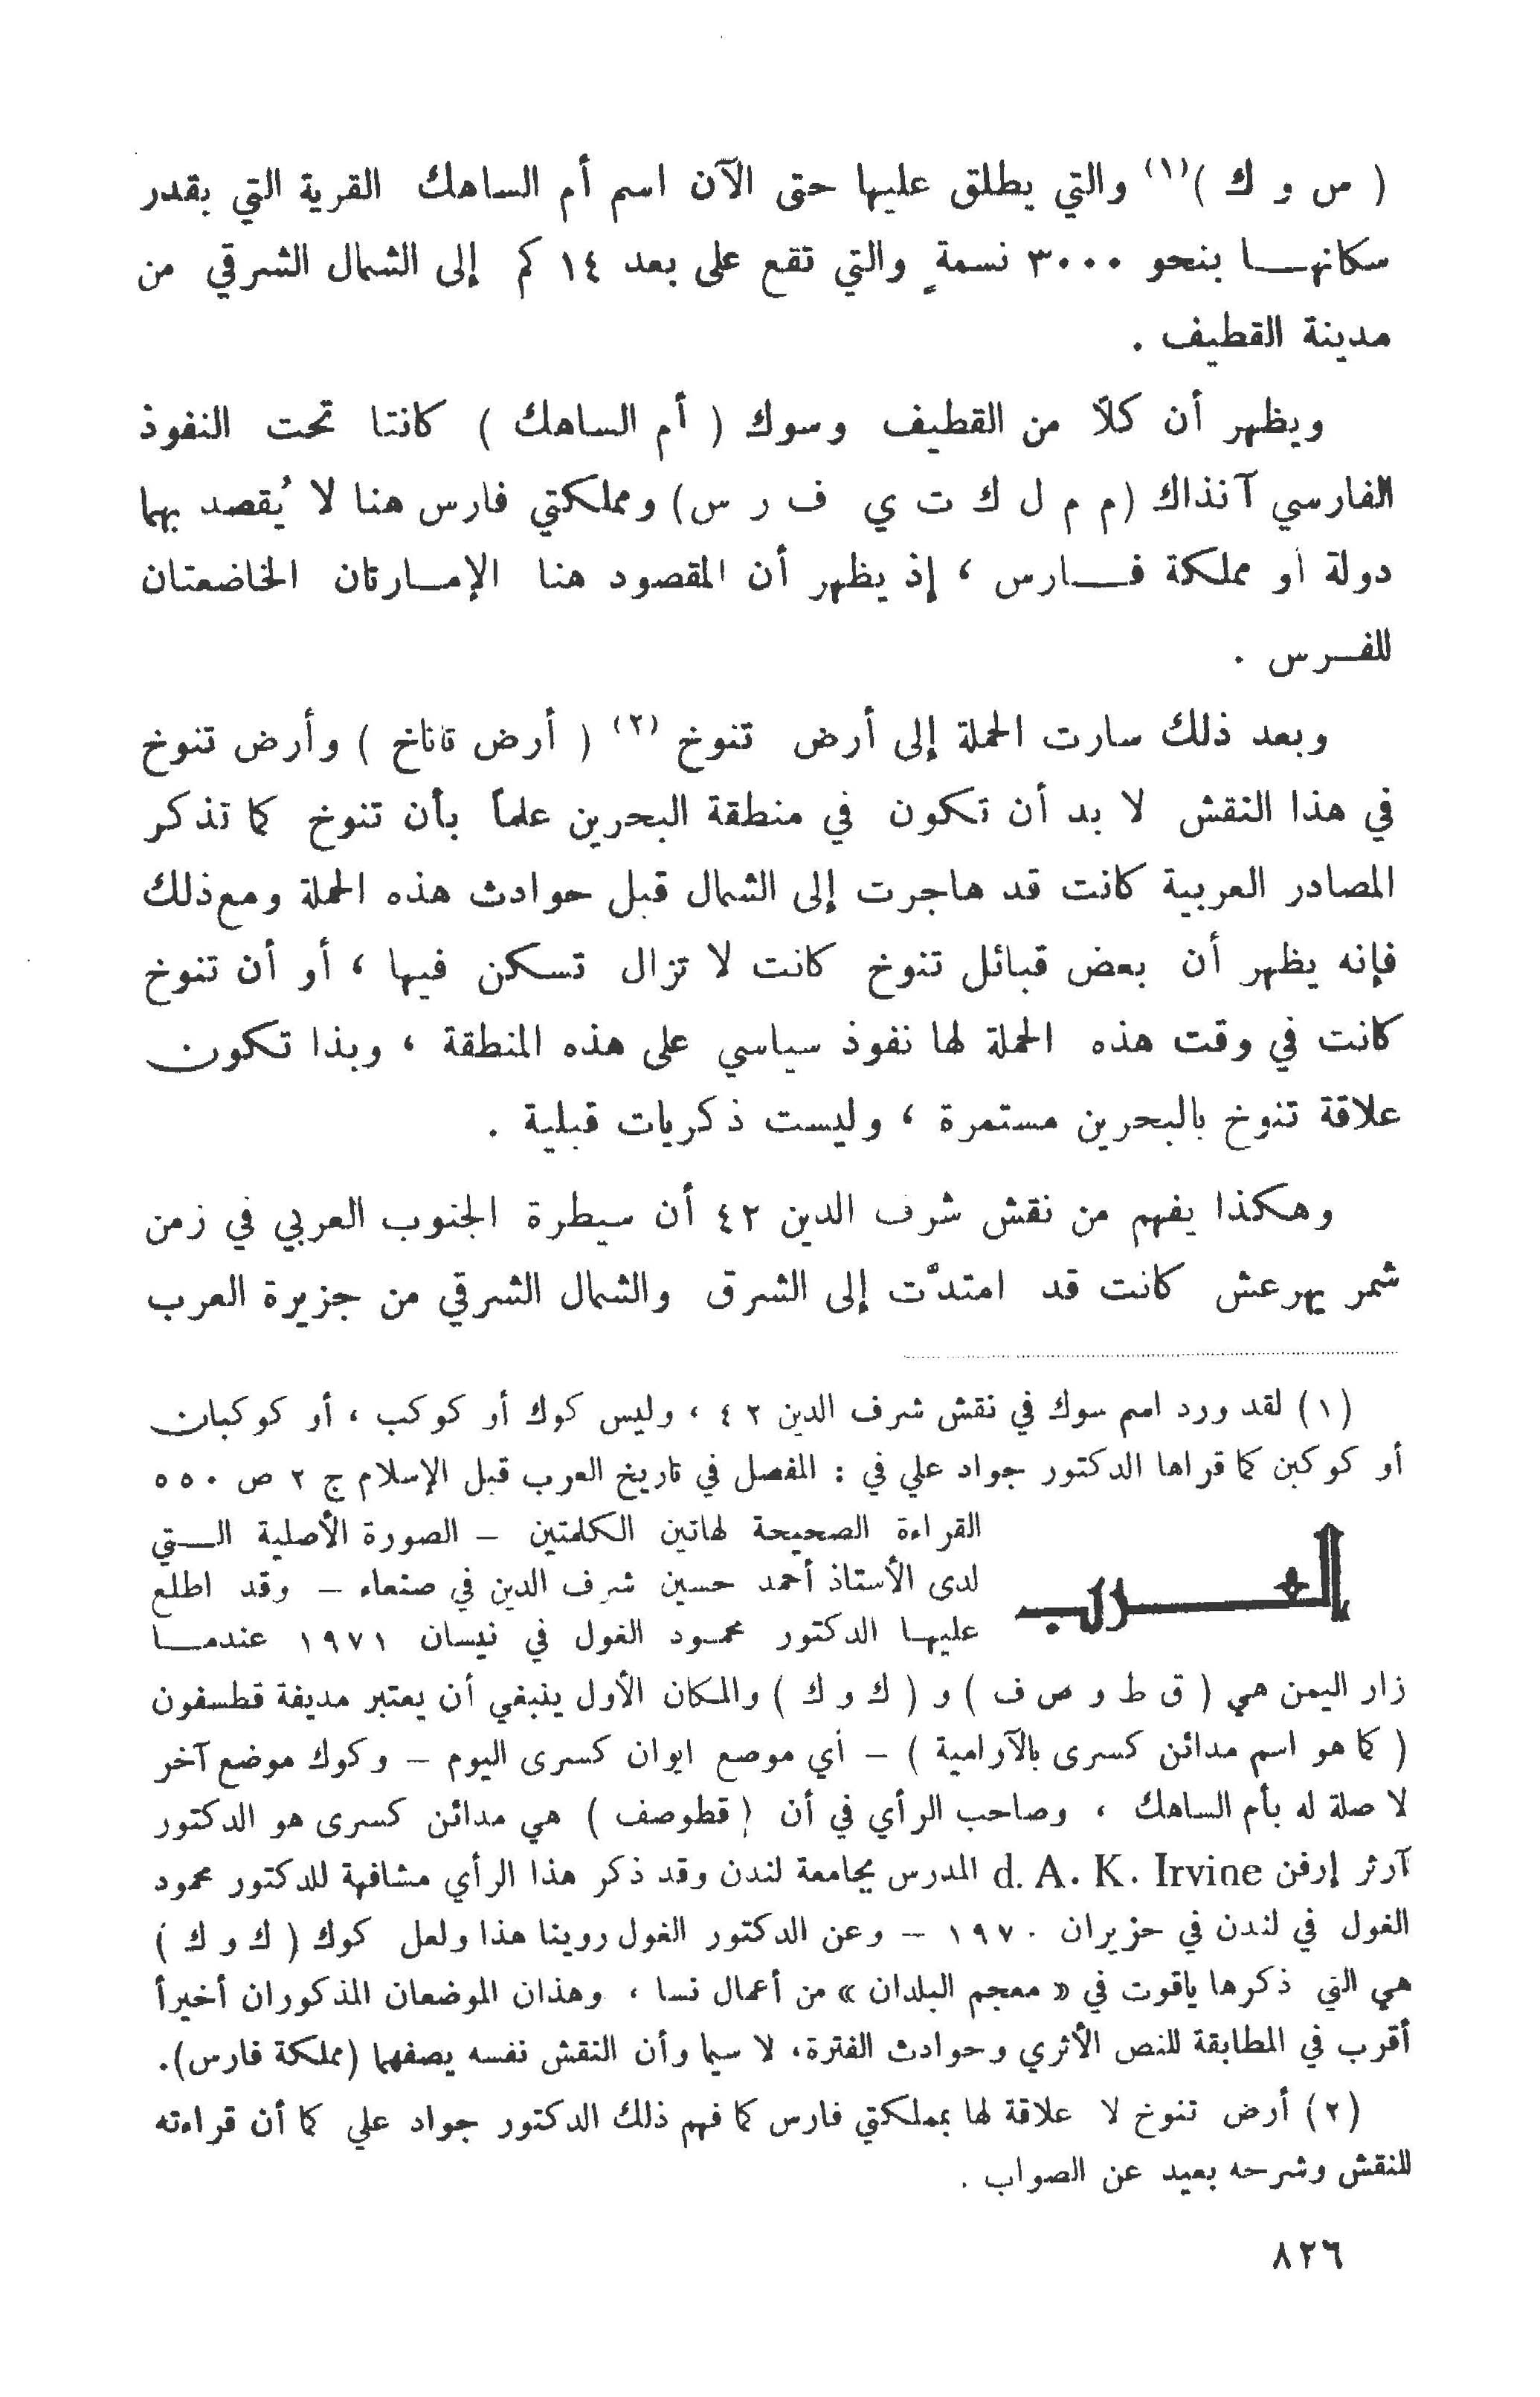 ( س و ك )(١) والتي يطلق عليها حتى الآن اسم أم الساهك القرية التي يقدر
سكانهـــا بنحو ٣٠٠٠ نسمةٍ والتي تقع على بعد ١٤ كم إلى الشمال الشرقي من
مدينة القطيف .
ويظهر أن كلاً من القطيف وسوك ( أم الساهك ) كانتا تحت النفوذ
الفارسي آنذاك (م م ل ك ت ي ف ر س) ومملكتي فارس هنا لا يُقصد بهما
دولة أو مملكة فـــارس ، إذ يظهر أن المقصود هنا الإمـــارتان الخاضعتان
للفـــرس .
وبعد ذلك سارت الحملة إلى أرض تنوخ (٢) ( أرض تاناخ ) وأرض تنوخ
في هذا النقش لا بد أن تكون في منطقة البحرين علماً بأن تنوخ كما تذكر
المصادر العربية كانت قد هاجرت إلى الشمال قبل حوادث هذه الحملة ومع ذلك
فإنه يظهر أن بعض قبائل تنوخ كانت لا تزال تسكن فيها ، أو أن تنوخ
كانت في وقت هذه الحملة لها نفوذ سياسي على هذه المنطقة ، وبذا تكون
علاقة تنوخ بالبحرين مستمرة ، وليست ذكريات قبلية .
وهكذا يفهم من نقش شرف الدين ٤٢ أن سيطرة الجنوب العربي في زمن
شمر يهرعش كانت قد امتدّت إلى الشرق والشمال الشرقي من جزيرة العرب
(١) لقد ورد اسم سوك في نقش شرف الدين ٤٢ ، وليس كوك أو كوكب ، أو كوكبان
أو كوكبن كما قراها الدكتور جواد علي في : المفصل في تاريخ العرب قبل الإسلام ج ٢ ص ٥٥٠
العـــرب
القراءة الصحيحة لهاتين الكلمتين – الصورة الأصلية الـــتي
لدى الأستاذ أحمد حسين شرف الدين في صنعاء – وقد اطلع
عليهـا الدكتور محمـود الغول في نيسان ١٩٧١ عندمـــا
زار اليمن هي ( ق ط و ص ف ) و ( ك و ك ) والمكان الأول ينبغي أن يعتبر مدينة قطسفون
( كما هو اسم مدائن كسرى بالآرامية ) – أي موصع ايوان كسرى اليوم – وكوك موضع آخر
لا صلة له بأم الساهك ، وصاحب الرأي في أن ( قطوصف ) هي مدائن كسرى هو الدكتور
آرثر إرفن d. A. K. Irvine المدرس بجامعة لندن وقد ذكر هذا الرأي مشافهة للدكتور محمود
الغول في لندن في حزيران ١٩٧٠ – وعن الدكتور الغول روينا هذا ولعل كوك ( ك و ك )
هي التي ذكرها ياقوت في « معجم البلدان » من أعمال نسا ، وهذان الموضعان المذكوران أخيراً
أقرب في المطابقة للنص الأثري وحوادث الفترة، لا سيما وأن النقش نفسه يصفهما (مملكة فارس).
(٢) أرض تنوخ لا علاقة لها بمملكتي فارس كما فهم ذلك الدكتور جواد علي كما أن قراءته
للنقش وشرحه بعيد عن الصواب .
٨٢٦